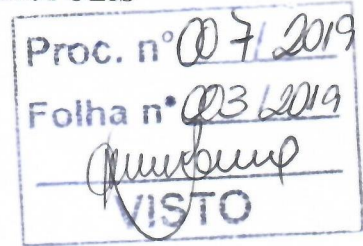 Proc. n° 007/2019
Folha n° 003/2019
VISTO